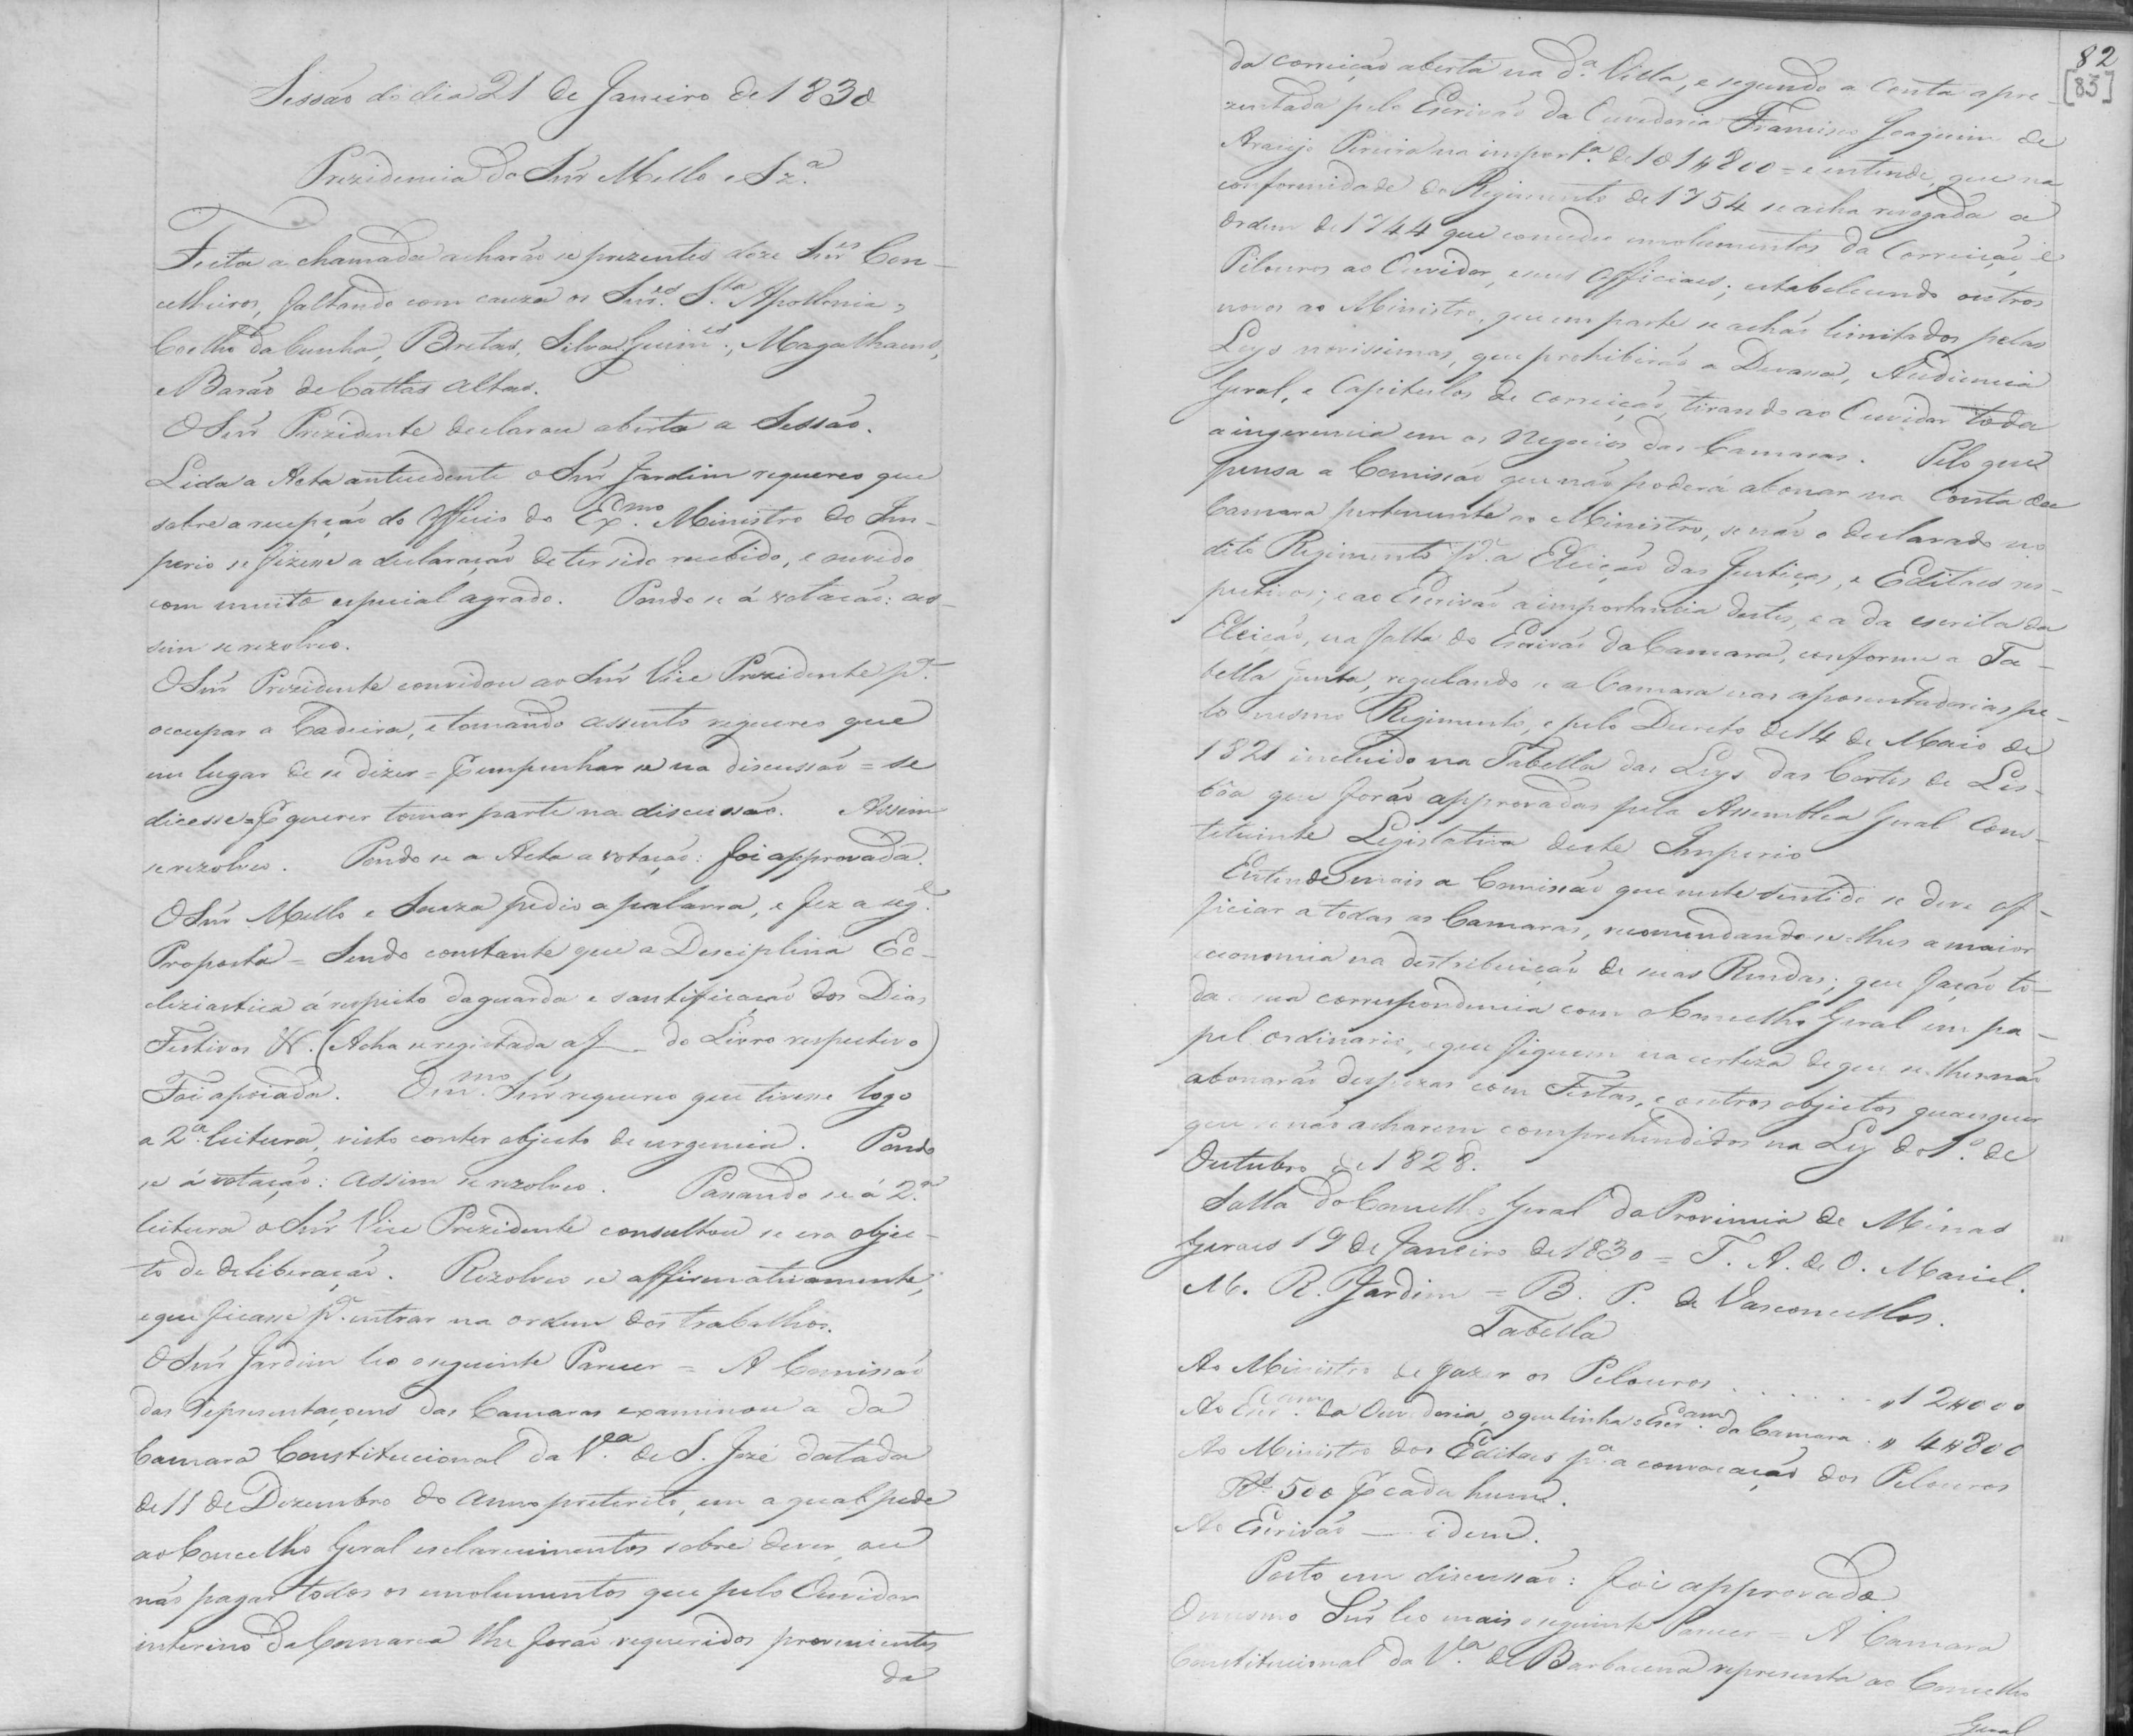 Sessão do dia 21 de Janeiro de 1830
Prezidencia do Snr Mello e Sz.ª
Feita a chamada acharão se prezentes doze Snr.es Con-
celheiros, faltando com cauza os Snr.es S.ta Apollonia,
Coelho da Cunha, Bretas, Silva Guim.es, Magalhaens,
e Barão de Cattas Altas.
O Snr Prezidente declarou aberta a Sessão.
Lida a Acta antecedente o Snr Jardim requereo que
sobre a recepção do Officio do Ex.mo Ministro do Im-
perio se fizesse a declaração de ter sido recebido, e ouvido
com muito especial agrado. Pondo se á votação: as-
sim se rezolveo.
O Snr Prezidente convidou ao Snr Vice Prezidente p.ª
occupar a Cadeira, e tomando assento requereo que
em lugar de se dizer = P empenhar se na discussão = se
dicesse = P querer tomar parte na discussão. Assim
se rezolveo. Pondo se a Acta a votação: foi approvada.
O Snr Mello e Souza pedio a palavra, e fez a seg.e
Proposta = Sendo constante que a Desciplina Ec-
cleziastica á respeito da guarda e santificação dos Dias
Festivos &. (Acha se registada a f __ do Livro respectivo)
Foi apoiada. O m.mo Snr requereo que tivesse logo
a 2.ª leitura, visto conter objecto de urgencia. Pondo
se á votação: assim se rezolveo. Passando se á 2.ª
leitura o Snr Vice Prezidente consultou se era objec-
to de deliberação. Rezolveo se affirmativamente,
e que ficasse p.ª entrar na ordem dos trabalhos.
O Snr Jardim leo o seguinte Parecer = A Comissão
das Representaçoens das Camaras examinou a da
Camara Constitucional da V.ª de S. Jozé datada
de 11 de Dezembro do anno preterito, em a qual pede
ao Concelho Geral esclarecimentos sobre dever, ou
não pagar todos os emolumentos que pelo Ouvidor
interino da Comarca lhe forão requeridos provenientes
da
82
[83]
da correição aberta na d.ª Villa, e segundo a Conta apre-
zentada pelo Escrivão da Ouvedoria Francisco Joaquim de
Araujo Pereira na import.ª de 101#800 = e entende, que na
conformidade do Regimento de 1754 se acha revogada a
Ordem de 1744 que concede emolumentos da Correição e
Pilouros ao Ouvidor, e seus Officiaes; estabelecendo outros
novos ao Ministro, que em parte se achão limitados pelas
Leys novissimas, que prohibirão a Devassa, Audiencia
Geral, e Capitulos de correição, tirando ao Ouvidor toda
a ingerencia em os Negocios das Camaras. Pelo que
pensa a Comissão que não poderá abonar na Conta da
Camara pertencente ao Ministro, se não o declarado no
dito Regimento p.ª a Eleição das Justiças, e Editaes res-
pectivos; e ao Escrivão a importancia destes, e a da escrita da
Eleição, na falta do Escrivão da Camara, conforme a Ta-
bella junta, regulando se a Camara nas aposentadorias pe-
lo mesmo Regimento, e pelo Decreto de 14 de Maio de
1821 incluido na Tabella das Leys das Cortes de Lis-
bôa que forão approvadas pela Assemblea Geral Cons-
tetuinte Legislativa deste Imperio
Entende mais a Comissão que neste sentido se deve of-
ficiar a todas as Camaras, recomendando se lhes a maior
economia na destribuição de suas Rendas; que fação to-
da a sua correspondencia com o Concelho Geral em pa-
pel ordinario, e que fiquem na certeza de que se lhes não
abonarão despezas com Festas, e outros objectos quaesquer
que se não acharem comprehendidos na Ley do 1.º de
Outubro de 1828.
Salla do Concelho Geral da Provincia de Minas
Geraes 19 de Janeiro de 1830 = T. A. de O. Maciel.
M. R. Jardim = B. P. de Vasconcellos.
Tabella
Ao Ministro de fazer os Pelouros . . . . . . . . " 12#000
Ao Escr.am da Ouvedoria, o que tinha o Escr.am da Camara . " 4#800
Ao Ministro dos Editaes p.ª a convocação dos Pelouros
R.s 500 P cada hum.
Ao Escrivão — idem.
Posto em discussão: foi approvado.
O mesmo Snr leo mais o seguinte Parecer = A Camara
Constitucional da V.ª de Barbacena representa ao Concelho
Geral